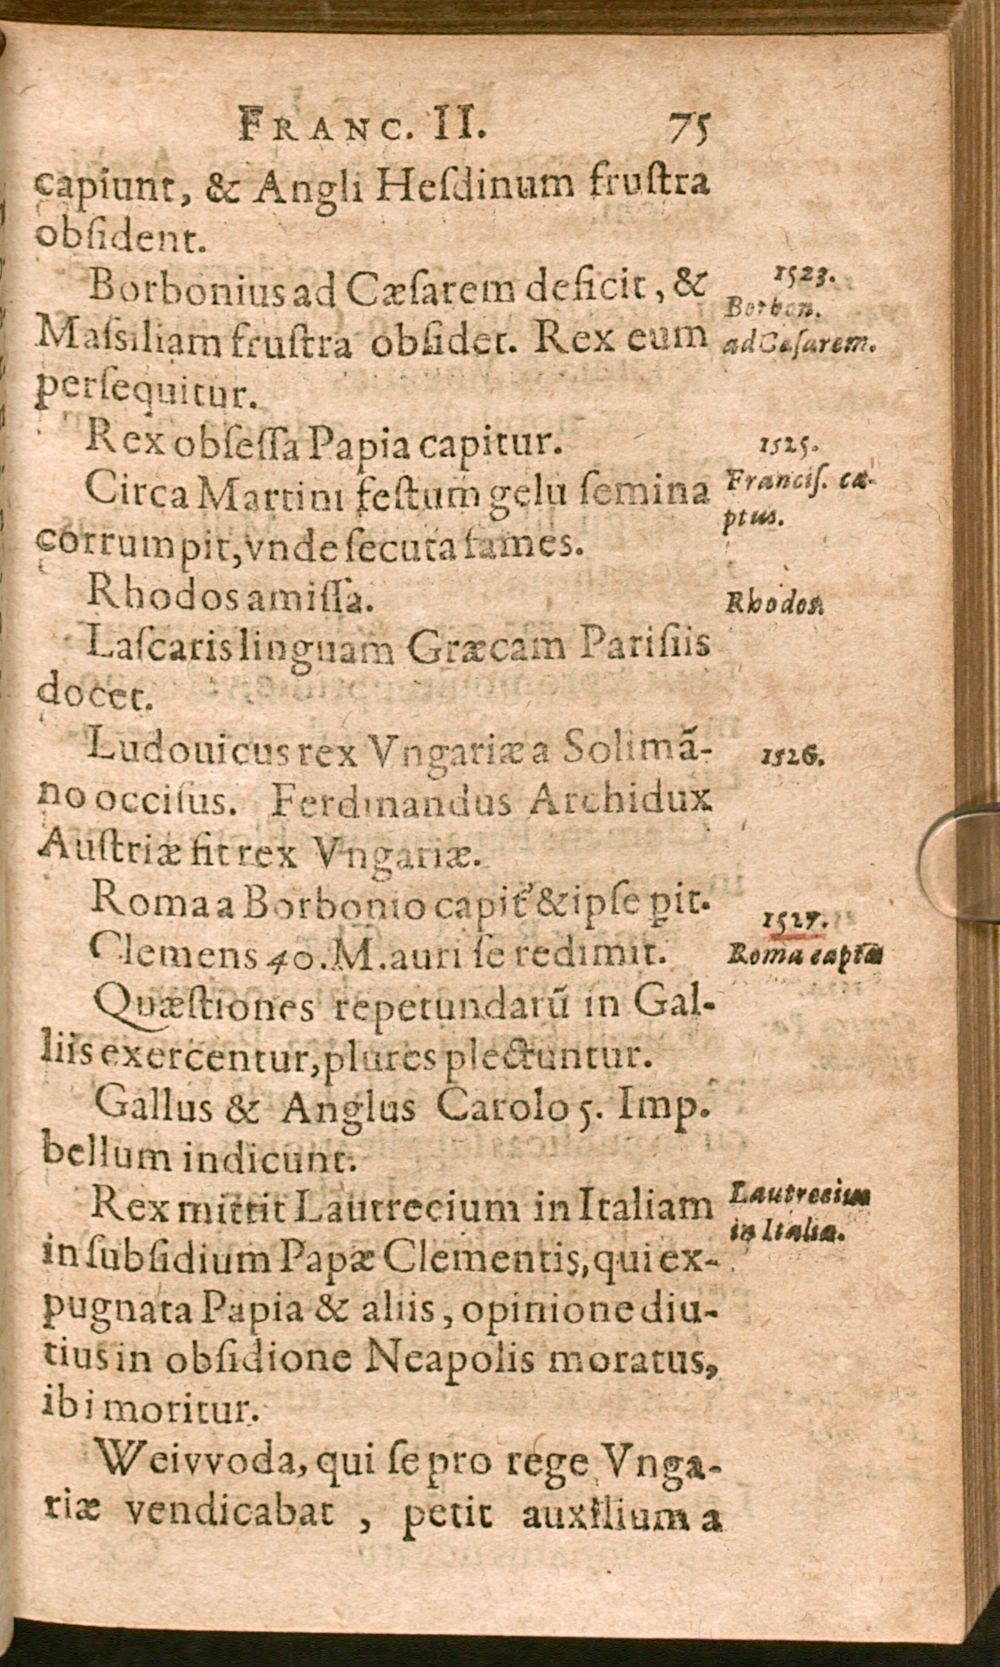 FRANC. II. 75
capiunt, & Angli Heſdinum fruſtra
obſident.
Borbonius ad Cæſarem deficit, &
Maſsiliam fruſtra obſidet. Rex eum
perſequitur.
Rex obſeſſa Papia capitur.
Circa Martini feſtum gelu ſemina
corrumpit, vnde ſecuta fames.
Rhodos amiſſa.
Laſcaris linguam Græcam Pariſiis
docet.
Ludouicus rex Vngariæ a Solimã-
no occiſus. Ferdinandus Archidux
Auſtriæ fit rex Vngariæ.
Roma a Borbonio capit᷒ & ipſe ꝑit.
Clemens 40. M. auri ſe redimit.
Quæſtiones repetundarũ in Gal-
liis exercentur, plures plectuntur.
Gallus & Anglus Carolo 5. Imp.
bellum indicunt.
Rex mittit Lautrecium in Italiam
in ſubſidium Papæ Clementis, qui ex-
pugnata Papia & aliis, opinione diu-
tius in obſidione Neapolis moratus,
ibi moritur.
Weivvoda, qui ſe pro rege Vnga-
riæ vendicabat, petit auxilium a
1523.
Borbon.
ad Ceſarem.
1525.
Franciſ. ca-
ptus.
Rhodos
1526.
1527.
Roma capta
Lautrecius
in Italia.